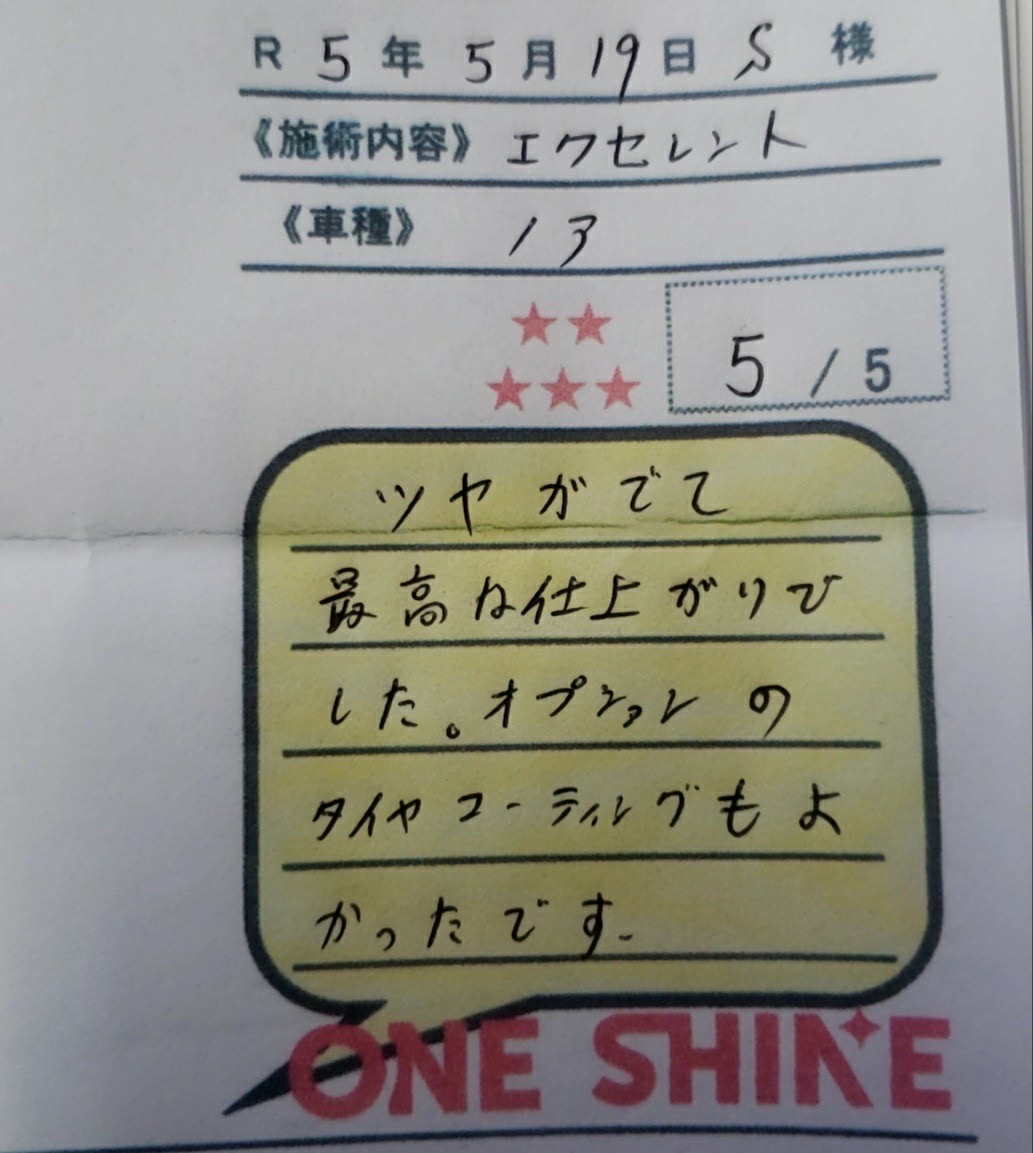 R 5年 5月 19日 S 様
《施術内容》 エクセレント
《車種》 ノア
5 / 5
ツヤがでて
最高な仕上がりで
した。オプションの
タイヤコーティングもよ
かったです.
ONE SHINE